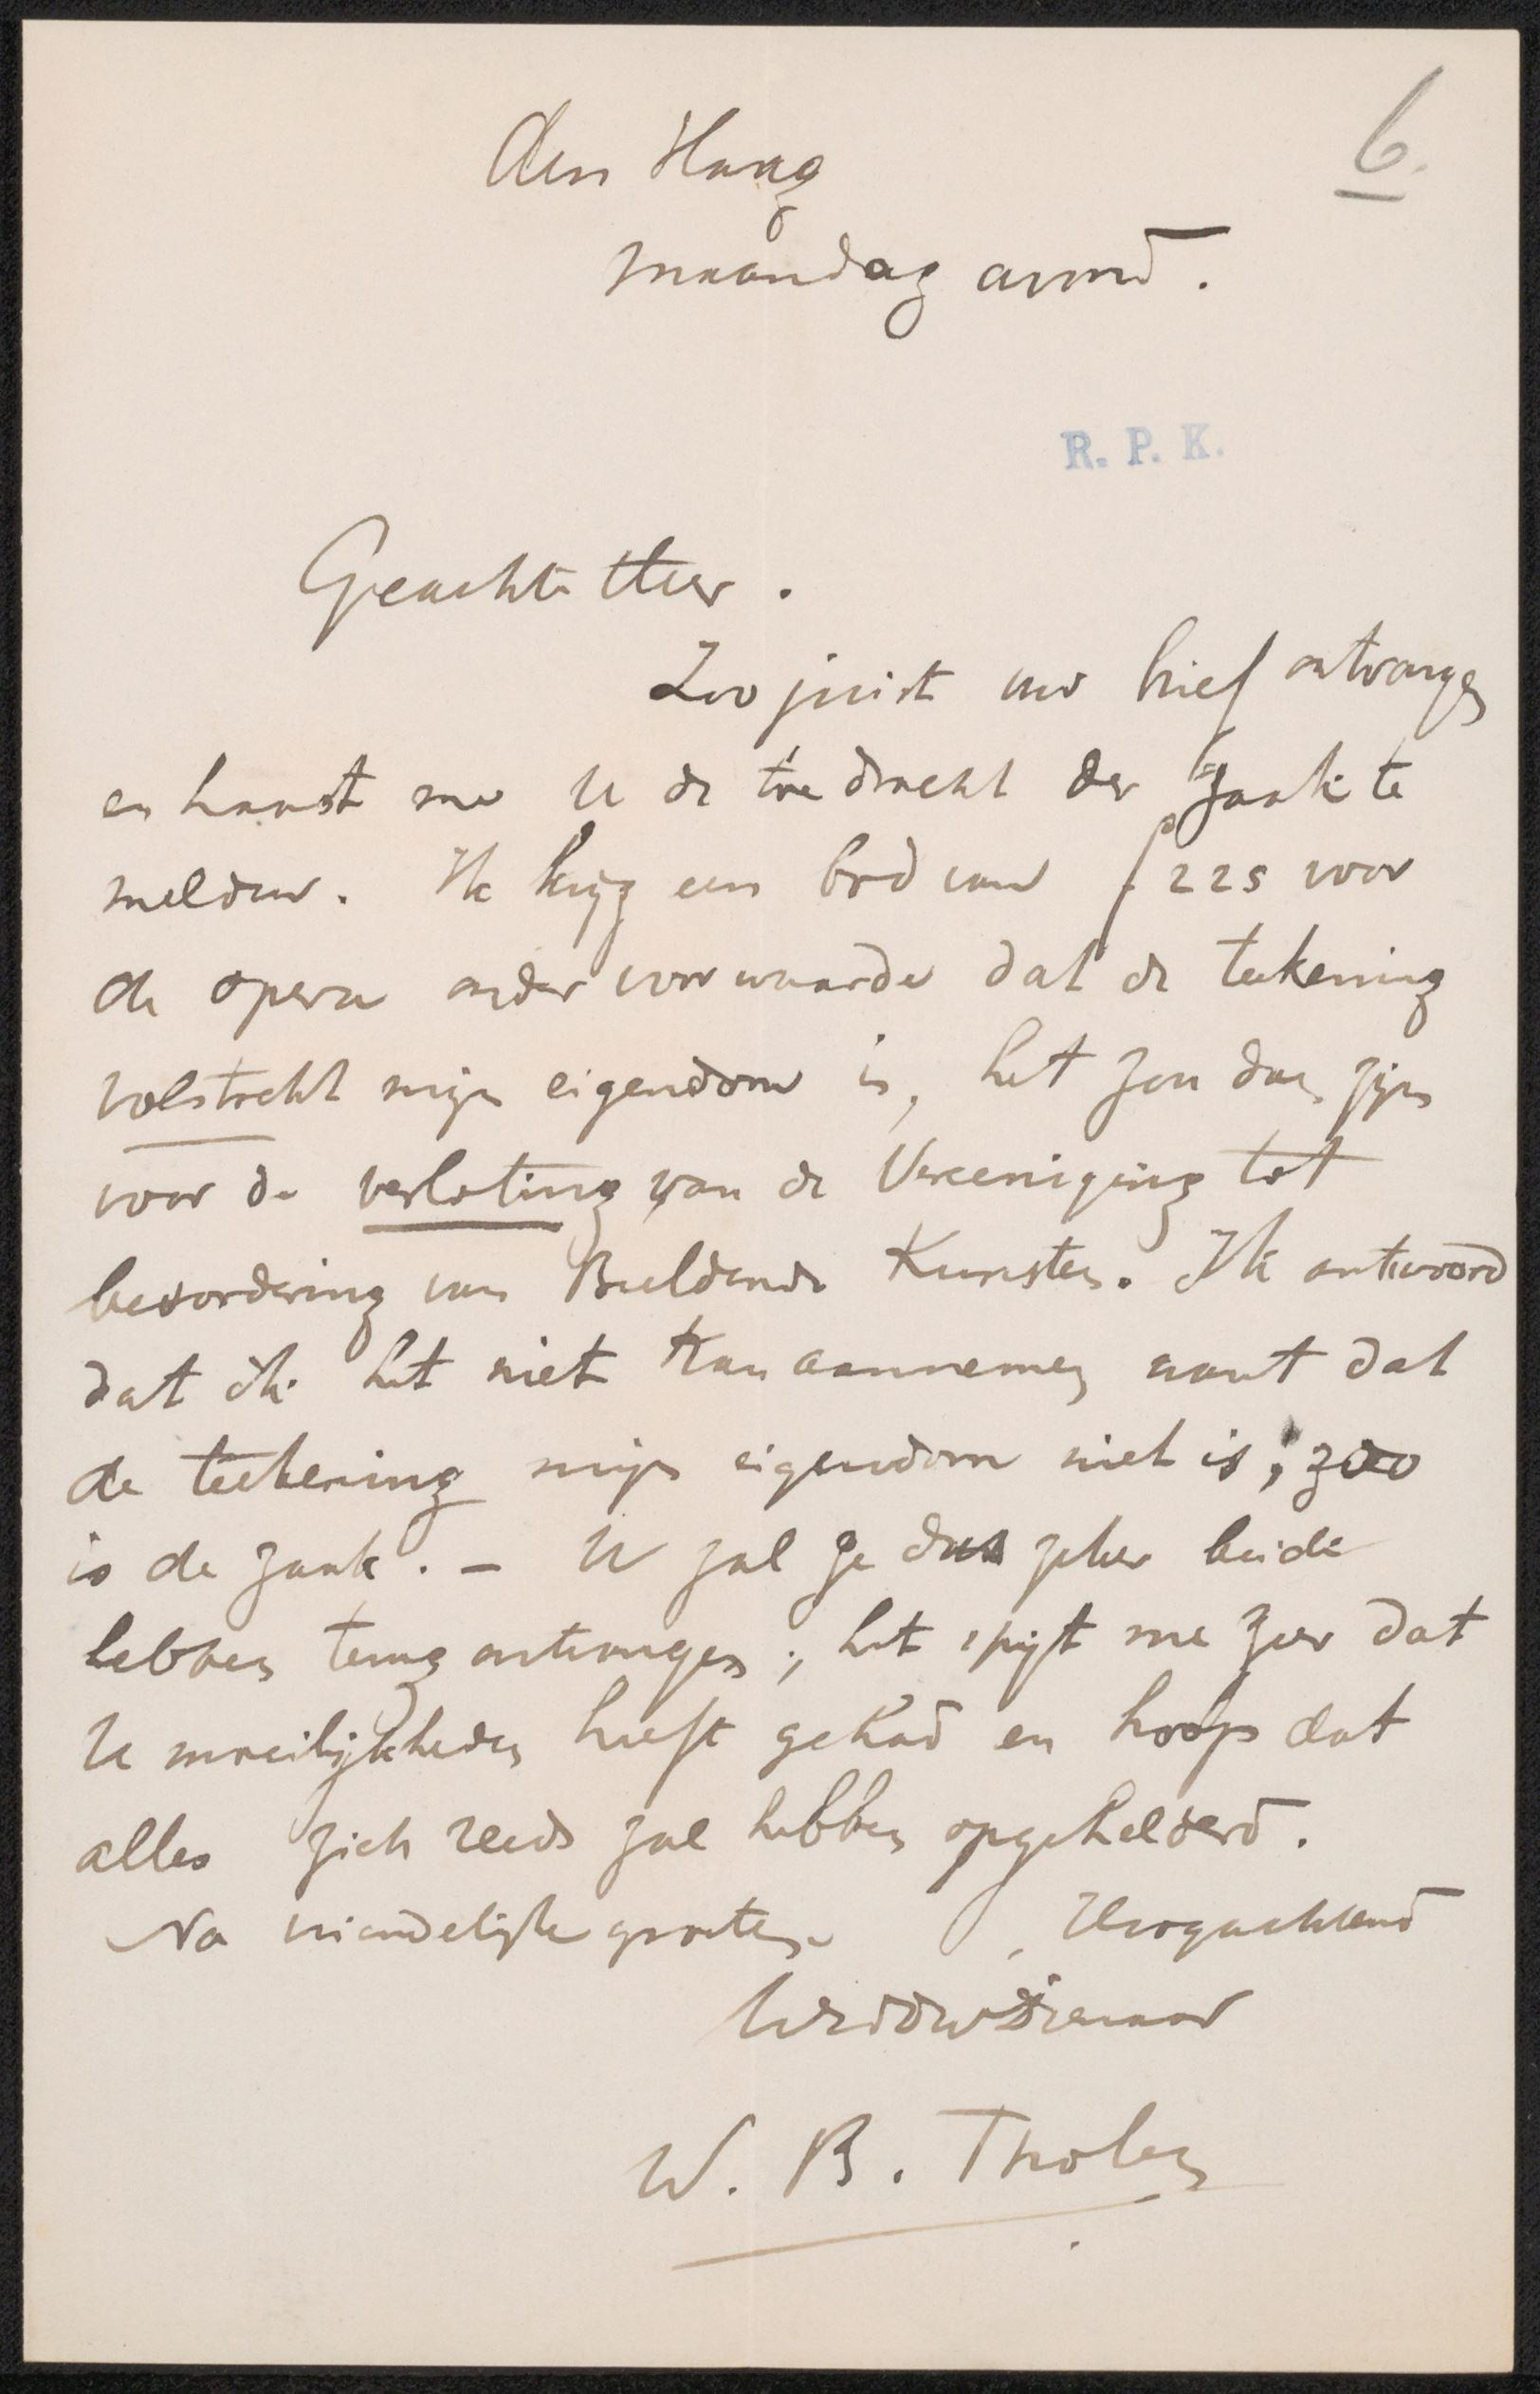 den Haag
6.
maandag avond.
R. P. K.
Geachte Heer.
Zoo juist uw brief ontvangen
en haast me U de toedracht der zaak te
melden. Ik krijg een bod van f 225 voor
de opera onder voorwaarde dat de teekening
volstrekt mijn eigendom is, het zou dan zijn
voor de verloting van de Vereeniging tot
bevordering van Beeldende Kunsten. Ik antwoord
dat ik het niet kan aannemen want dat
de teekening mijn eigendom niet is; zoo
is de zaak. – U zal ze dus zeker beide
hebben terug ontvangen; het spijt me zeer dat
U moeilijkheden heeft gehad en hoop dat
alles zich reeds zal hebben opgehelderd.
Na vriendelijke groeten Hoogachtend
Uw dw dienaar
W. B. Tholen